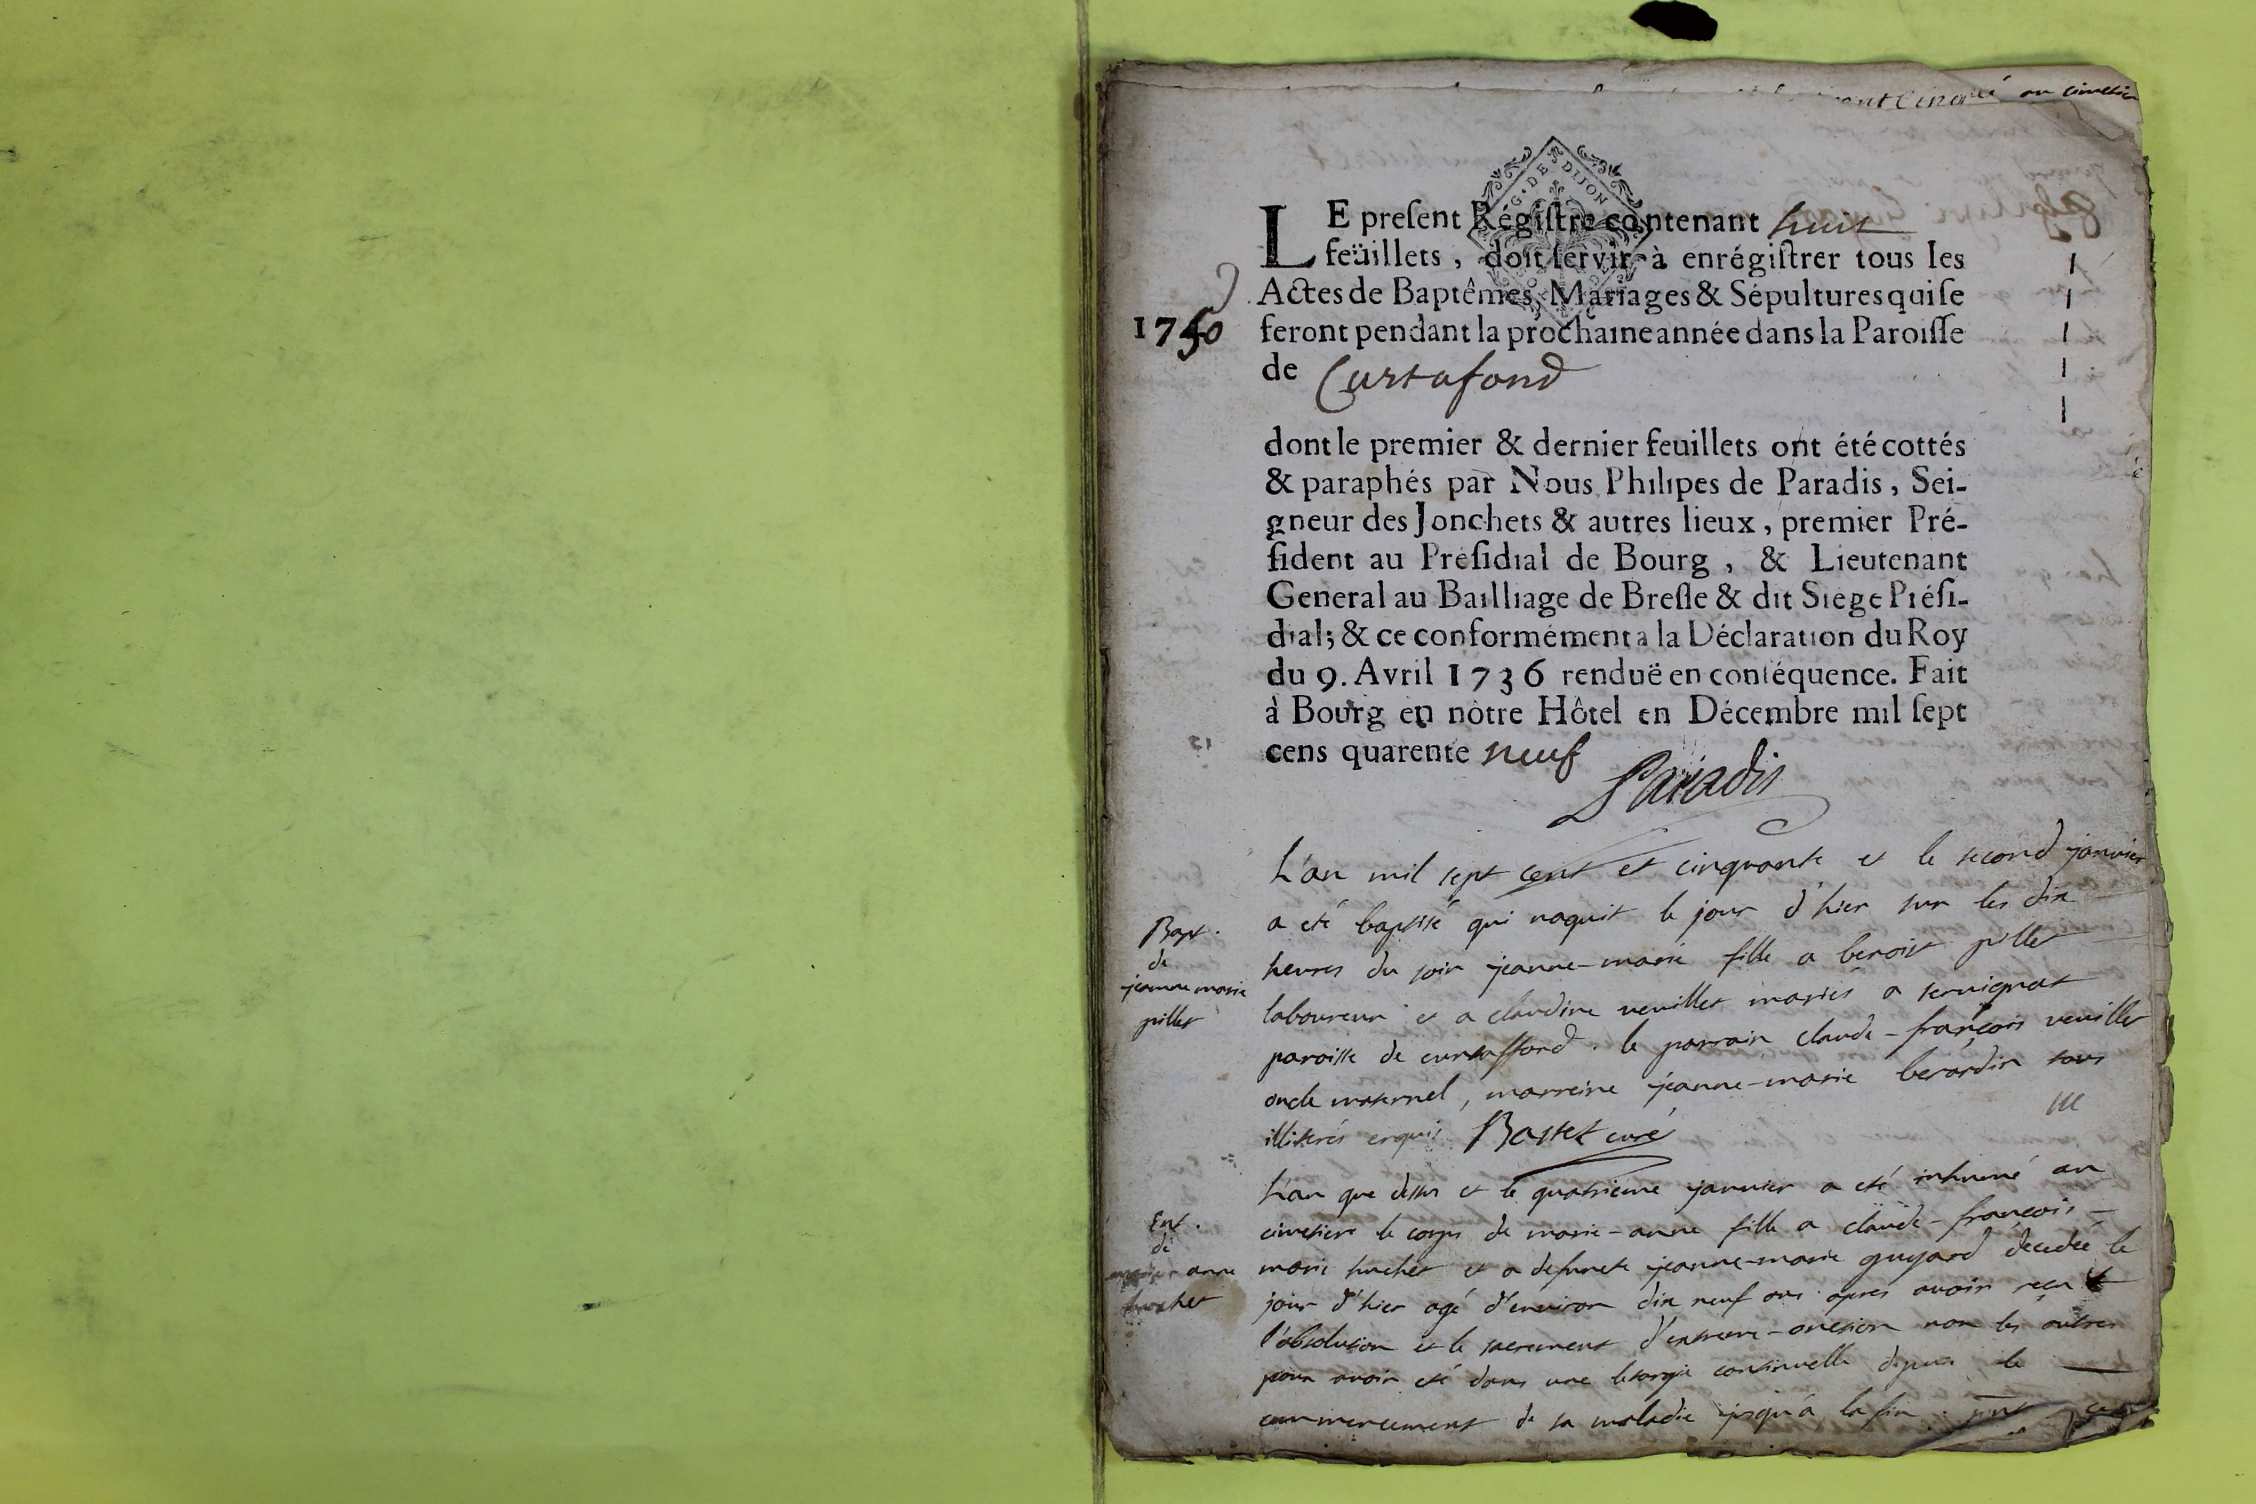 au cimetier
G. DE DIJON
LE preſent Régiſtre contenant huit
feüillets, doit ſervir à enrégiſtrer tous les
Actes de Baptêmes, Mariages & Sépultures qui ſe
1750
feront pendant la prochaine année dans la Paroiſſe
de Curtafond
dont le premier & dernier feuillets ont été cottés
& paraphés par Nous Philipes de Paradis, Sei-
gneur des Jonchets & autres lieux, premier Pré-
ſident au Préſidial de Bourg, & Lieutenant
General au Bailliage de Breſſe & dit Siége Préſi-
dial; & ce conformément a la Déclaration du Roy
du 9. Avril 1736 renduë en conſéquence. Fait
à Bourg en nôtre Hôtel en Décembre mil ſept
cens quarente neuf
Paradis
L'an mil sept cent et cinquante et le second janvier
a eté baptisé qui naquit le jour d'hier sur les dix
heures du soir jeanne-marie fille a benoist pillet
laboureur et a claudine veuillet mariés a servignat
paroisse de curtaffond. le parrain claude-françois veuillet
oncle maternel, marreine jeanne-marie berardin tous
illiterés enquis Bastet curé
Bapt.
de
jeanne marie
pillet
L'an que dessus et le quatrieme janvier a eté inhumé au
cimetiere le corps de marie-anne fille a claude-françois-
marie huchet et a defuncte jeanne-marie guyard decedée le
jour d'hier agé d'environ dix neuf ans apres avoir reçu
l'absolution et le sacrement d'extreme-onction non les autres
pour avoir eté dans une letargie continuelle depuis le
commencement de sa maladie jusqu'á la fin.
Ent.
de
marie anne
huchet